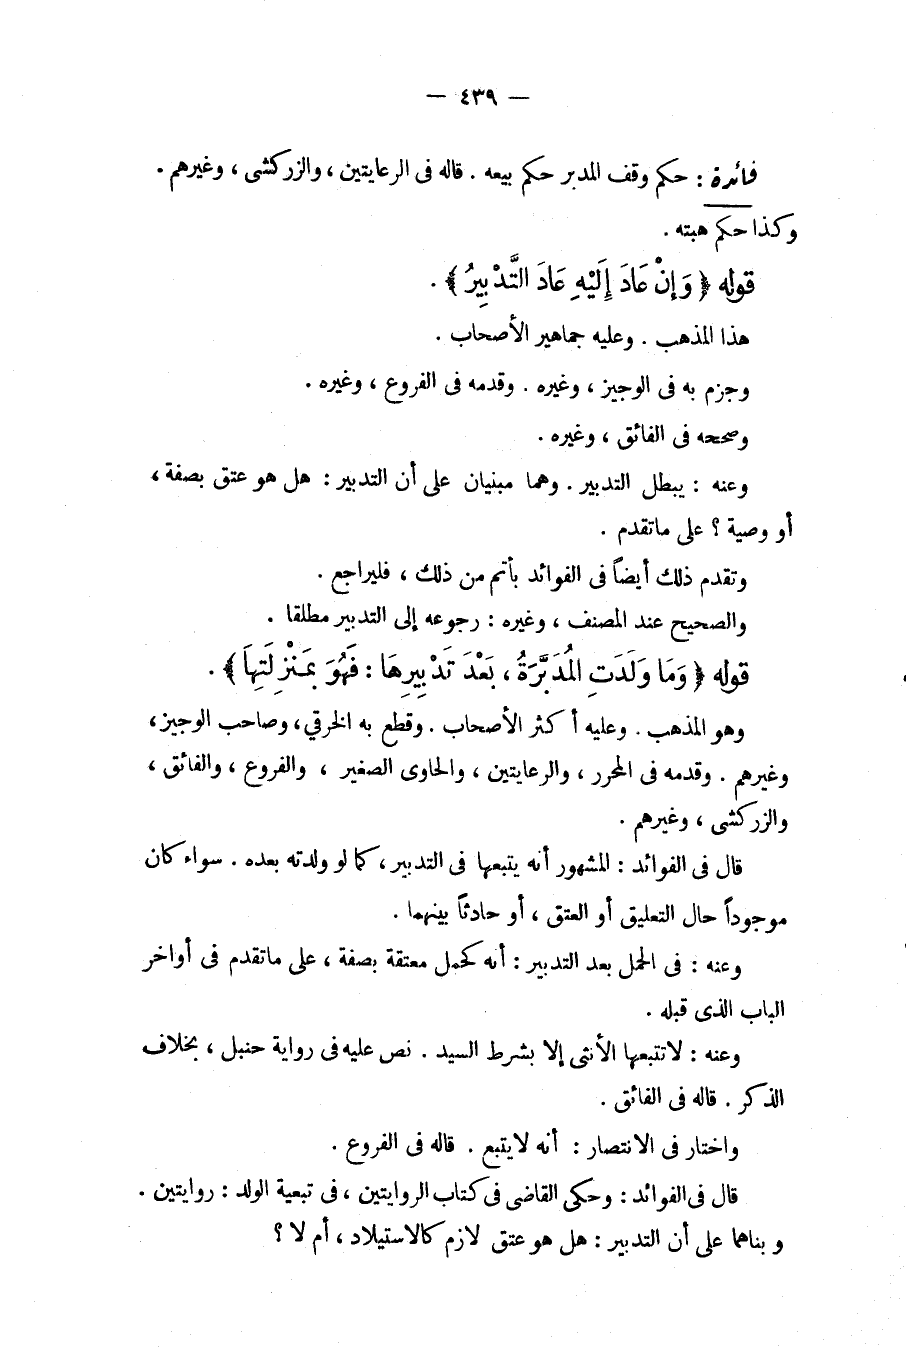 — ٤٣٩ —
فائدة : حكم وقف المدبر حكم بيعه . قاله فى الرعايتين ، والزركشى ، وغيرهم .
وكذا حكم هبته .
قوله ﴿ وَإِنْ عَادَ إِلَيْهِ عَادَ التَّدْبِيرُ ﴾ .
هذا المذهب . وعليه جماهير الأصحاب .
وجزم به فى الوجيز ، وغيره . وقدمه فى الفروع ، وغيره .
وصححه فى الفائق ، وغيره .
وعنه : يبطل التدبير . وهما مبنيان على أن التدبير : هل هو عتق بصفة ،
أو وصية ؟ على ماتقدم .
وتقدم ذلك أيضاً فى الفوائد بأتم من ذلك ، فليراجع .
والصحيح عند المصنف ، وغيره : رجوعه إلى التدبير مطلقا .
قوله ﴿ وَمَا وَلَدَتِ الْمُدَبَّرَةُ ، بَعْدَ تَدْبِيرِهَا : فَهُوَ بِمَنْزِلَتِهَا ﴾ .
وهو المذهب . وعليه أكثر الأصحاب . وقطع به الخرقي ، وصاحب الوجيز ،
وغيرهم . وقدمه فى المحرر ، والرعايتين ، والحاوى الصغير ، والفروع ، والفائق ،
والزركشى ، وغيرهم .
قال فى الفوائد : المشهور أنه يتبعها فى التدبير ، كما لو ولدته بعده . سواء كان
موجوداً حال التعليق أو العتق ، أو حادثاً بينهما .
وعنه : فى الحمل بعد التدبير : أنه كحمل معتقة بصفة ، على ماتقدم فى أواخر
الباب الذى قبله .
وعنه : لاتتبعها الأنثى إلا بشرط السيد . نص عليه فى رواية حنبل ، بخلاف
الذكر . قاله فى الفائق .
واختار فى الانتصار : أنه لايتبع . قاله فى الفروع .
قال فى الفوائد : وحكى القاضى فى كتاب الروايتين ، فى تبعية الولد : روايتين .
وبناهما على أن التدبير : هل هو عتق لازم كالاستيلاد ، أم لا ؟